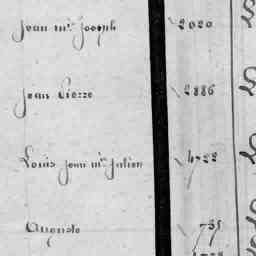 Jean Mie Joseph 2020
Jean Pierre 2886
Louis Jean Mie Julien 4722
Auguste 735